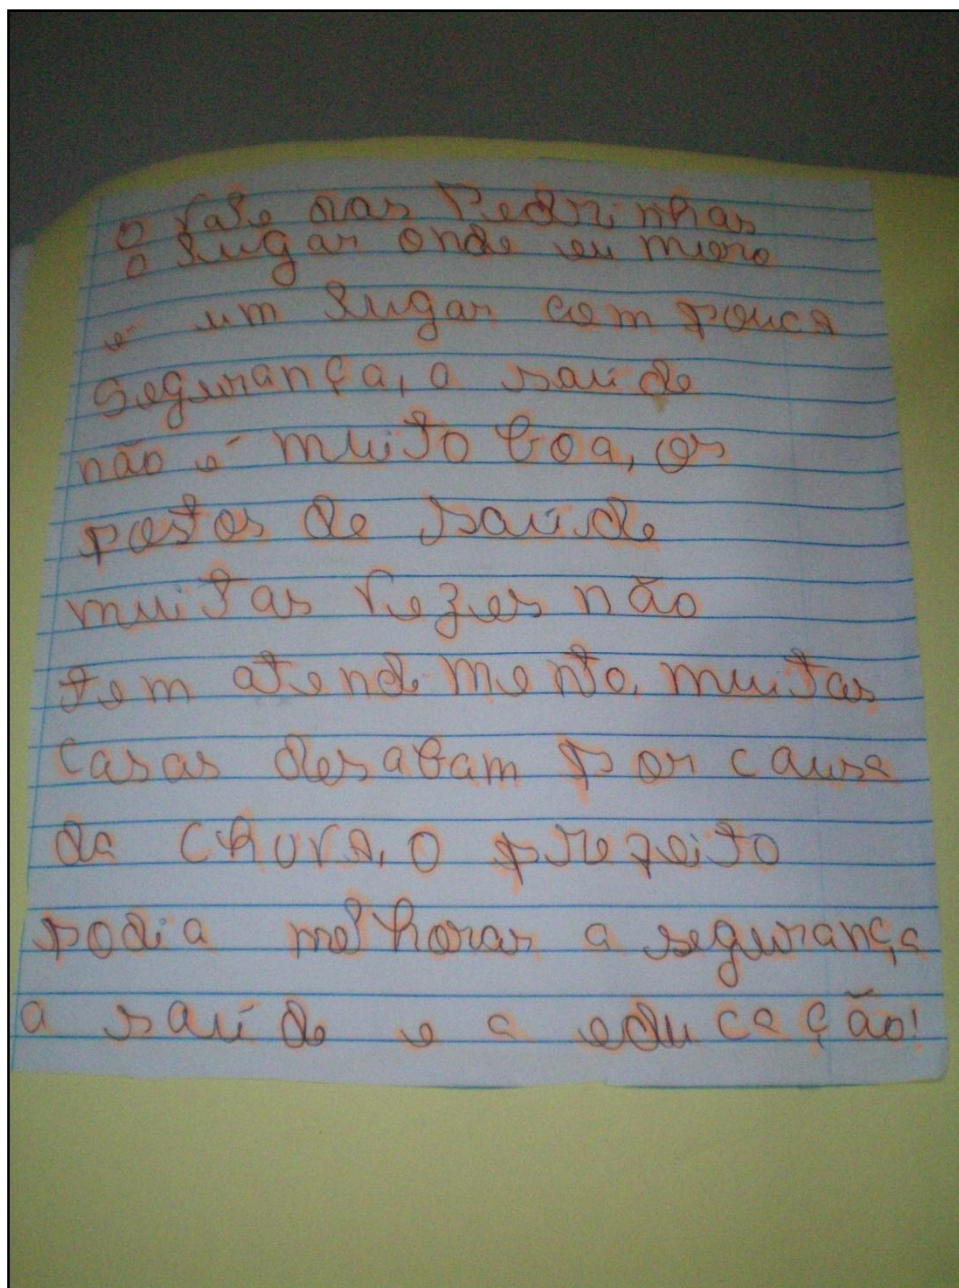 O Vale das Pedrinhas
o lugar onde eu moro
é um lugar com pouca
segurança, a saúde
não é muito boa, os
postos de saúde
muitas vezes não
tem atendimento, muitas
casas desabam por causa
da chuva, o prefeito
podia melhorar a segurança
a saúde e a educação!